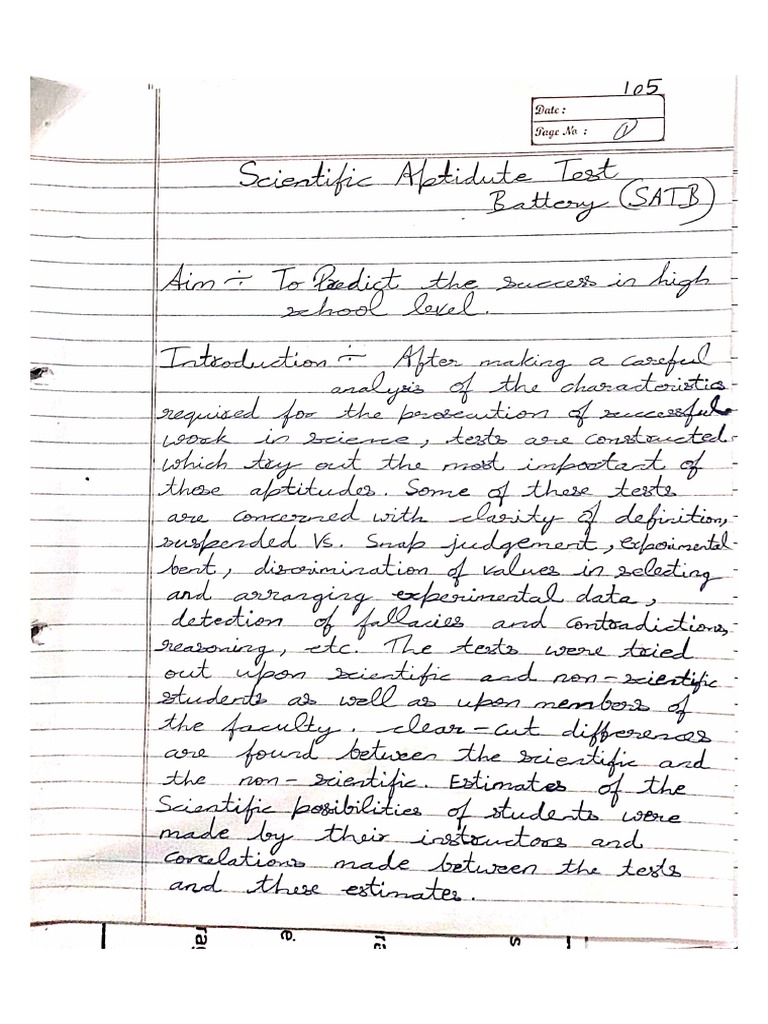 105
Date :
Page No : 1
Scientific Aptidute Test
Battery (SATB)
Aim ÷ To Predict the success in high
school level.
Introduction ÷ After making a careful
analysis of the characteristics
required for the prosecution of successful
work in science, tests are constructed
which try out the most important of
these aptitudes. Some of these tests
are concerned with clarity of definition,
suspended Vs. Snap judgement, experimental
bent, discrimination of values in selecting
and arranging experimental data,
detection of fallacies and contradictions,
reasoning, etc. The tests were tried
out upon scientific and non-scientific
students as well as upon members of
the faculty. clear-cut differences
are found between the scientific and
the non-scientific. Estimates of the
Scientific posibilities of students were
made by their instructors and
correlations made between the tests
and these estimates.